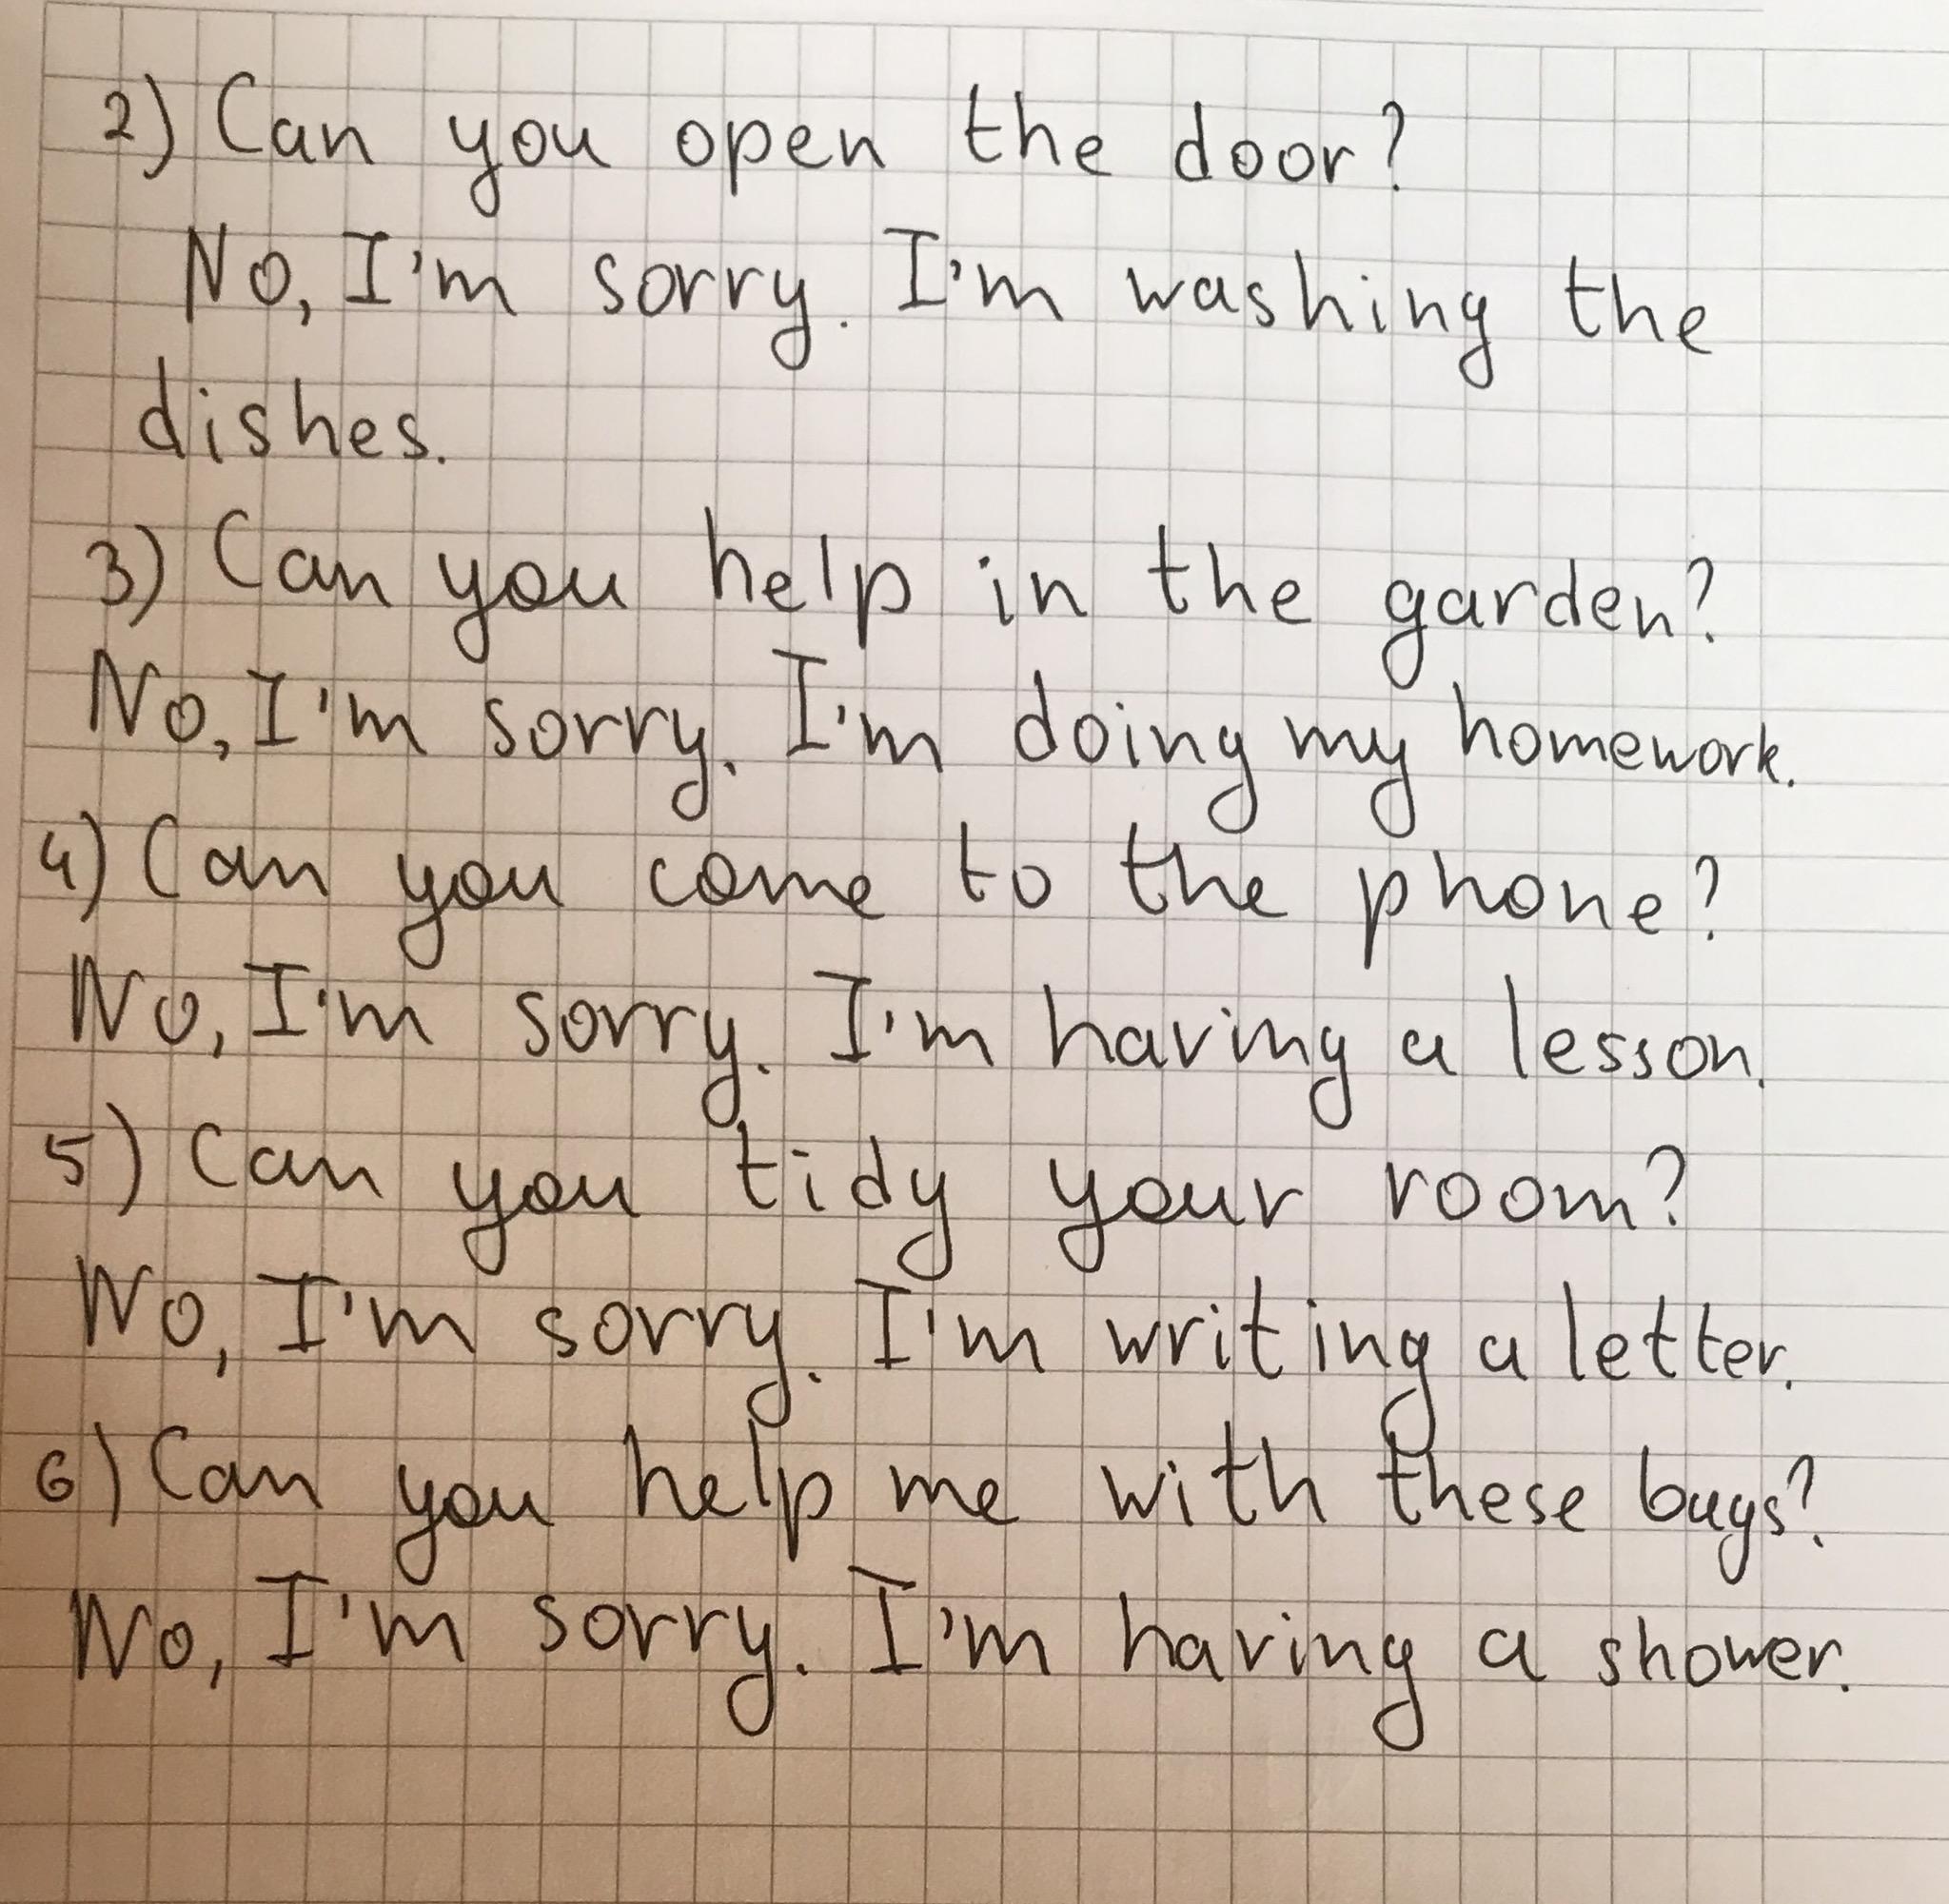 2) Can you open the door?
No, I'm sorry. I'm washing the
dishes.
3) Can you help in the garden?
No, I'm sorry. I'm doing my homework.
4) Can you come to the phone?
No, I'm sorry. I'm having a lesson.
5) Can you tidy your room?
No, I'm sorry. I'm writing a letter.
6) Can you help me with these bags?
No, I'm sorry. I'm having a shower.